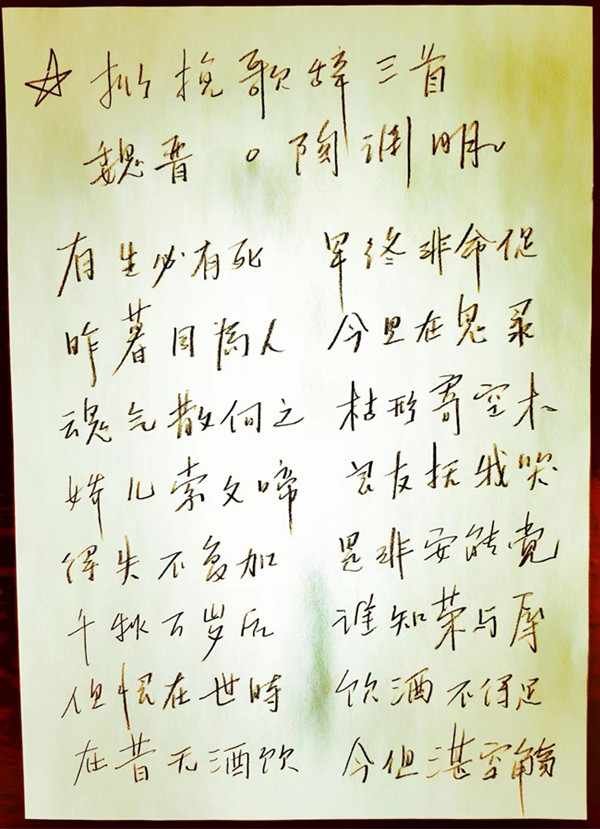 ☆ 拟挽歌辞三首
魏晋。陶渊明。
有生必有死 早终非命促
昨暮同為人 今旦在鬼录
魂气散何之 枯形寄空木
娇儿索父啼 良友抚我哭
得失不复加 是非安能觉
千秋万岁后 谁知荣与辱
但恨在世时 饮酒不得足
在昔无酒饮 今但湛空觞